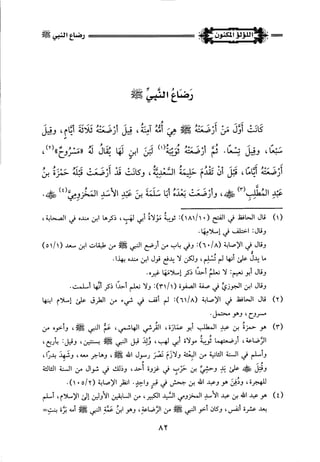 اللؤلؤ المكنون
رضاع النبي ﷺ
رَضَاعُ النَّبِيِّ ﷺ
كَانَتْ أَوَّلَ مَنْ أَرْضَعَتْهُ ﷺ هِيَ أُمُّهُ آمِنَةُ، قِيلَ أَرْضَعَتْهُ ثَلَاثَةَ أَيَّامٍ، وَقِيلَ
سَبْعًا، وَقِيلَ تِسْعًا. ثُمَّ أَرْضَعَتْهُ ثُوَيْبَةُ(١) بِلَبَنِ ابْنٍ لَهَا يُقَالُ لَهُ «مَسْرُوحٌ»(٢)،
أَرْضَعَتْهُ أَيَّامًا، قَبْلَ أَنْ تَقْدُمَ حَلِيمَةُ السَّعْدِيَّةُ، وَكَانَتْ قَدْ أَرْضَعَتْ قَبْلَهُ حَمْزَةَ بنَ
عَبْدِ الْمُطَّلِبِ(٣) ﵁، وَأَرْضَعَتْ بَعْدَهُ أَبَا سَلَمَةَ بنَ عَبْدِ الْأَسَدِ الْمَخْزُومِيَّ(٤) ﵁.
(١) قال الحافظ في الفتح (١٠/١٨١): ثويبة مولاة أبي لهب، ذكرها ابن منده في الصحابة،
وقال: اختلف في إسلامها.
وقال في الإصابة (٨/٦٠): وفي باب من أرضع النبي ﷺ من طبقات ابن سعد (١/٥١)
ما يدل على أنها لم تُسلم، ولكن لا يدفع قول ابن منده بهذا.
وقال أبو نعيم: لا نعلم أحدًا ذكر إسلامها غيره.
وقال ابن الجوزي في صفة الصفوة (١/٣١): ولا نعلم أحدًا ذكر أنها أسلمت.
(٢) قال الحافظ في الإصابة (٨/٦١): لم أقف في شيء من الطرق على إسلام ابنها
مسروح، وهو محتمل.
(٣) هو حمزة بن عبد المطلب أبو عمارة، القرشي الهاشمي، عم النبي ﷺ، وأخوه من
الرضاعة، أرضعتهما ثويبة مولاة أبي لهب، وُلد قبل النبي ﷺ بسنتين، وقيل: بأربع،
وأسلم في السنة الثانية من البعثة ولازم نصر رسول الله ﷺ، وهاجر معه، وشهد بدرًا،
وقُتل ﵁ على يد وحشي بن حرب في غزوة أُحد، وذلك في شوال من السنة الثالثة
للهجرة، ودُفن هو وعبد الله بن جحش في قبر واحد. انظر الإصابة (٢/١٠٥).
(٤) هو عبد الله بن عبد الأسد المخزومي السيد الكبير، من السابقين الأولين إلى الإسلام، أسلم
بعد عشرة أنفس، وكان أخو النبي ﷺ من الرضاعة، وهو ابن عمة النبي ﷺ أمه بَرَّة بنت=
٨٢